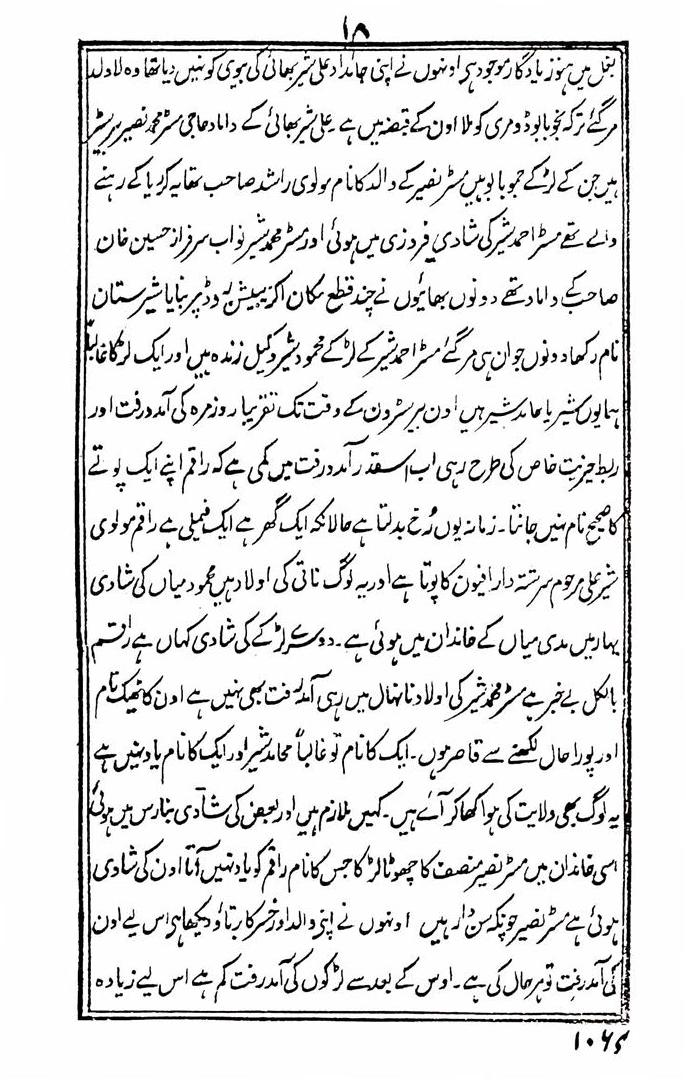 ۱۸
بغل میں ہنوز یادگار موجود ہی اونہوں نے اپنی جائداد علی شیر بھائی کی بیوی کو نہیں دیا تھا وہ لاولد
مر گئے ترکہ بخو بابو ڈومری کو ملا اون کے قبضہ میں ہے علی شیر بھائی کے داماد حاجی مسٹر محمد نصیر بیرسٹر
ہیں جن کے لڑکے حمو بابو ہیں مسٹر نصیر کے والد کا نام مولوی راشد صاحب تھا یہ کڑیا کے رہنے
والے تھے مسٹر احمد شیر کی شادی فردزی میں ہوئی اور مسٹر محمد شیر نواب سرفراز حسین خان
صاحب کے داماد تھے دونوں بھائیوں نے چند قطع مکان اکزیبیشن روڈ پر بنایا شیرستان
نام رکھا دونوں جوان ہی مر گئے مسٹر احمد شیر کے لڑکے محمود شیر وکیل زندہ ہیں اور ایک لڑکا غالباً
ہمایوں شیر یا حامد شیر ہیں اون بیرسٹرون کے وقت تک تقریباً روزمرہ کی آمدرفت اور
ربط حیزیت خاص کی طرح رہی اب اسقدر آمدرفت میں کمی ہے کہ راقم اپنے ایک پوتے
کا صحیح نام نہیں جانتا۔ زمانہ یوں رُخ بدلتا ہے حالانکہ ایک گھر ہے ایک فیملی ہے راقم مولوی
شیر علی مرحوم سرشتہ دار افیون کا پوتا ہے اور یہ لوگ ناتی کی اولاد ہیں محمود میاں کی شادی
بہار میں مدی میاں کے خاندان میں ہوئی ہے۔ دوسرے لڑکے کی شادی کہاں ہے راقم
بالکل بے خبر ہے مسٹر محمد شیر کی اولاد نانہال میں رہی آمدرفت بھی نہیں ہے اون کا ٹھیک نام
اور پورا حال لکھنے سے قاصر ہوں۔ ایک کا نام تو غالباً محامد شیر اور ایک کا نام یاد نہیں ہے
یہ لوگ بھی ولایت کی ہوا کھا کر آئے ہیں۔ کہیں ملازم ہیں اور بعض کی شادی بنارس میں ہوئی
اسی خاندان میں مسٹر نصیر منصف کا چھوٹا لڑکا جس کا نام راقم کو یاد نہیں آتا اون کی شادی
ہوئی ہے مسٹر نصیر چونکہ سن دار ہیں اونہوں نے اپنی والد اور خسر کا برتاؤ دیکھا ہی اس لیے اون
کی آمدرفت تو ہر حال کی ہے۔ اوس کے بعد سے لڑکوں کی آمدرفت کم ہے اس لیے زیادہ